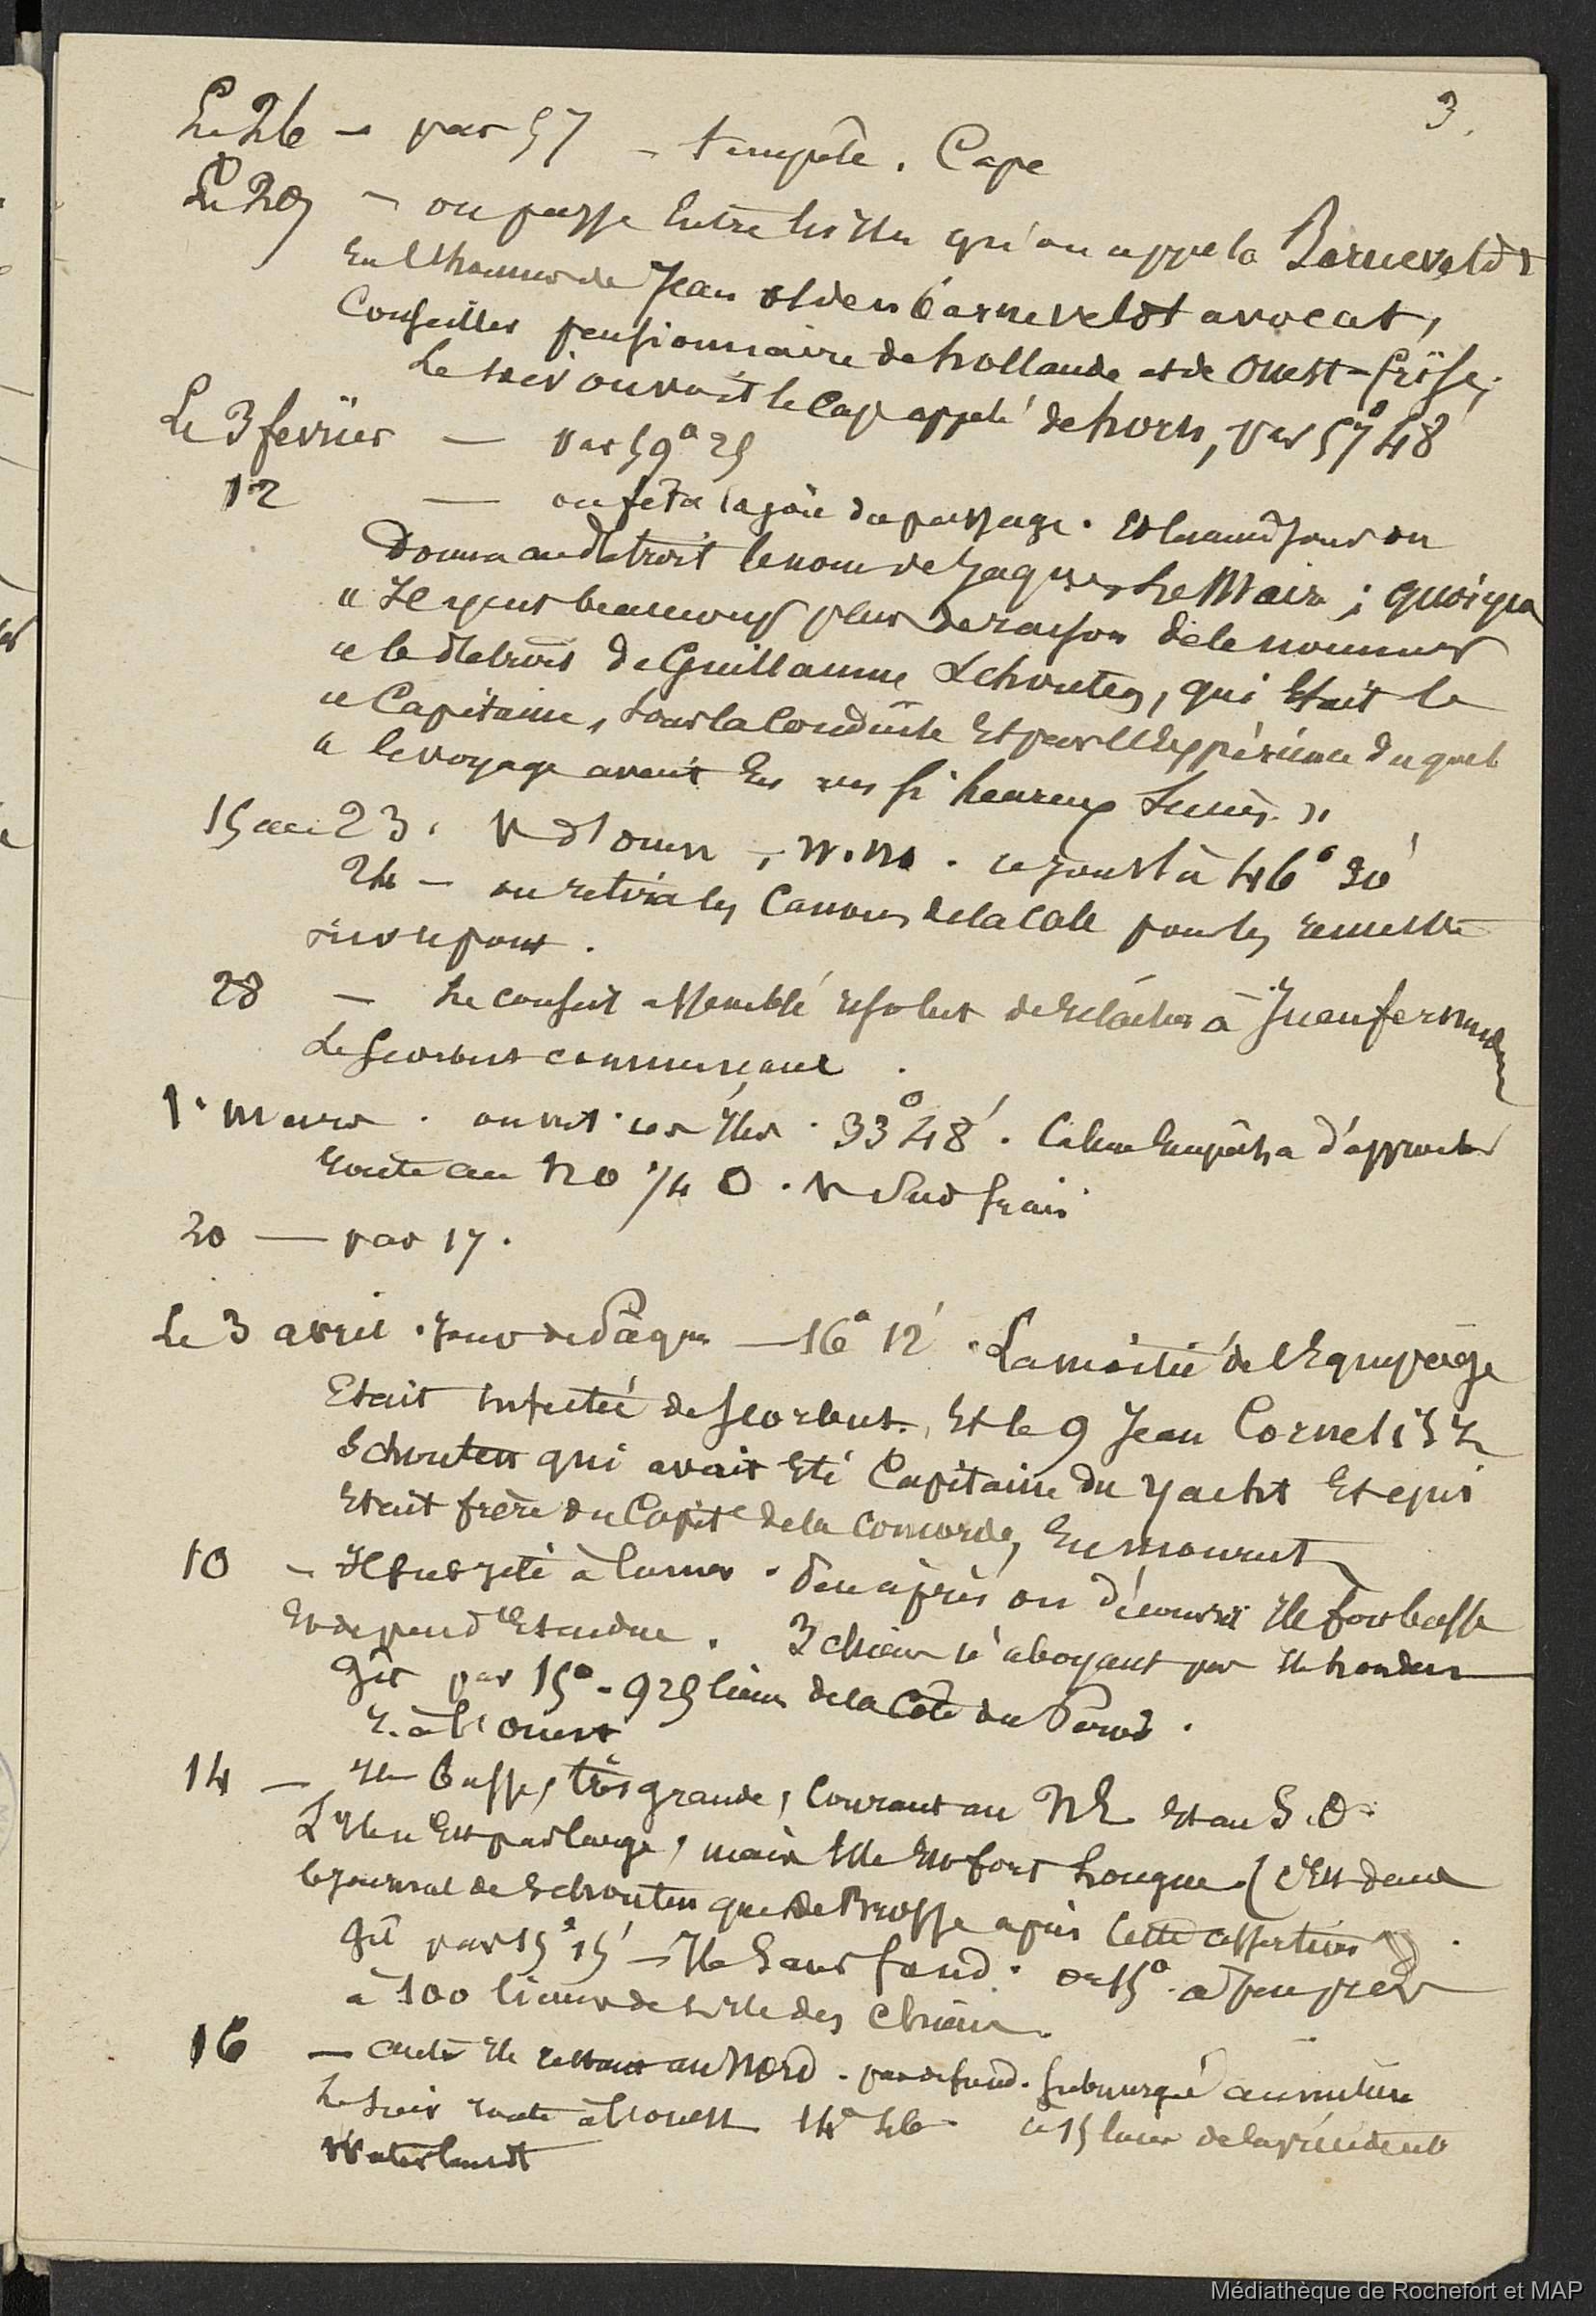 3.
Le 26 – par 57 – tempête. Cape
Le 29 – on passe entre les îles qu'on appela Barneveldt
en l'honneur de Jean olden barneveldt avocat,
Conseiller pensionnaire de hollande et de Ouest-frise;
Le soir on voit le Cap appelé de horn, par 57° 48'
Le 3 février — par 59° 25
12 — on fêta la joie du passage. Et le même jour on
donna au détroit le nom de Jaques Le Maire; quoique
" Il y eut beaucoup plus de raison de le nommer
" le détroit de Guillaume Schouten, qui était le
" Capitaine, sous la conduite et par l'expérience duquel
" le voyage avait eu un si heureux succès. "
15 au 23. V d'ouest, N.N. ce jour là 46° 30'
24 – on retira les canons de la cale pour les remettre
sur le pont.
28 — Le conseil assemblé résolut de relâcher à Juan fernandez
Le scorbut commençant.
1. mars. on vit ces îles. 33° 48'. Calme empêcha d'approcher
route au NO 1/4 O. V Sud frais
20 — par 17.
Le 3 avril. jour de Pâques — 16° 12'. La moitié de l'équipage
était infectée de scorbut. Et le 9 Jean Cornelisz
Schouten qui avait été Capitaine du yacht et qui
était frère du Capit^e de la Concorde, en mourut
10 – Il fut jeté à la mer. Peu après on découvrit île fort basse
et de peu d'étendue. 3 chiens n'aboyant pas île honden
gît par 15° - 925 lieues de la Côte du Perou.
à l'ouest
14 — Île basse, très grande, courant au NE et au S.O.
L'île n'est pas large, mais elle est fort longue (c'est dans
le journal de Schouten que de Brosse a pris cette assertion)
gît par 15° 15' – Île Sans fond. ou 15°. à peu près
à 100 lieues de l'île des chiens.
16 — autre île restant au Nord. pas de fond. submergé au milieu
Le soir route à l'ouest 14° 46 à 15 lieues de la précédente
Waterlandt
Médiathèque de Rochefort et MAP